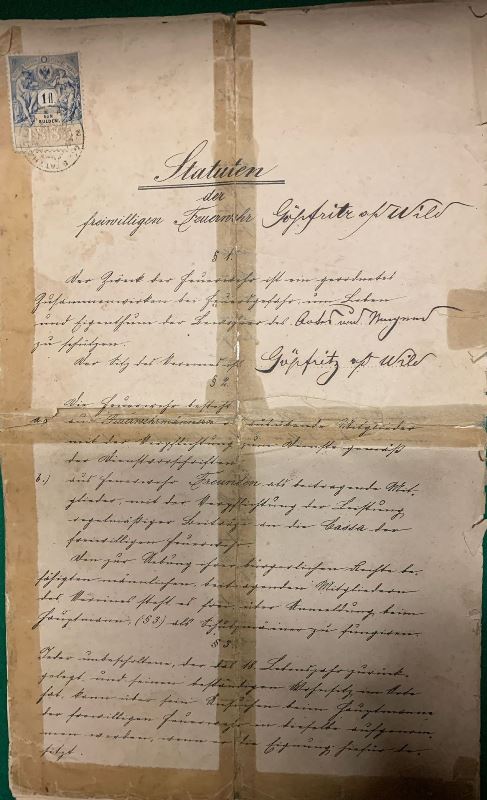 1 fl
EIN
GULDEN
Statuten
der
freiwilligen Feuerwehr Göpfritz a/d Wild
§ 1.
Der Zweck der Feuerwehr ist ein geordnetes
Zusammenwirken bei Feuersgefahr, um Leben
und Eigenthum der Bewohner des Ortes und
zu schützen.
Der Sitz des Vereines ist Göpfritz a/d Wild
§ 2.
Die Feuerwehr besteht
a.) aus Feuerwehrmännern ausübende Mitglieder
mit der Verpflichtung zum Dienste gemäß
der Dienstvorschriften
b.) aus Feuerwehr Freunden als beitragende Mit-
glieder, mit der Verpflichtung der Leistung
regelmäßiger Beiträge an die Cassa der
freiwilligen Feuerwehr.
Den zur Uebung ihrer bürgerlichen Rechte be-
fähigten männlichen, beitragenden Mitgliedern
des Vereines steht es frei, über Anmeldung beim
Hauptmann, (§ 3) als Schutzmänner zu fungiren.
§ 3.
Jeder unbescholtene, der das 18. Lebensjahr zurück-
gelegt, und seinen beständigen Wohnsitz im Orte
hat, kann über sein Ansuchen beim Hauptmann
der freiwilligen Feuerwehr in dieselbe aufgenom-
men werden, wenn er die Eignung hiefür be-
sitzt.